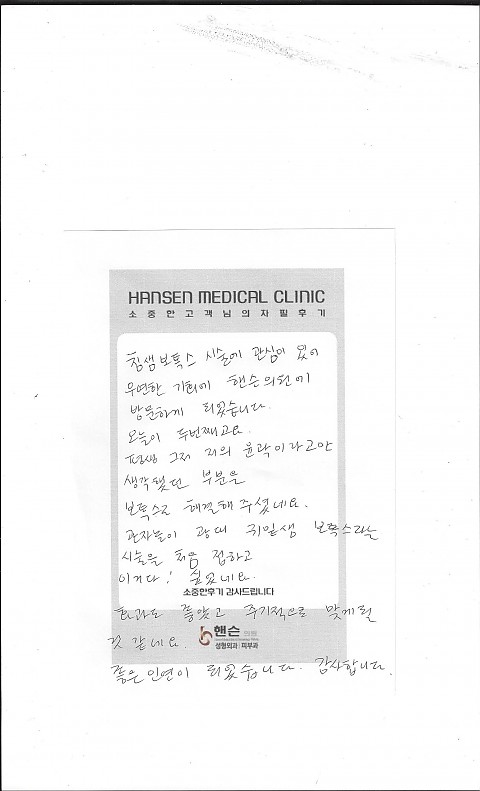 HANSEN MEDICAL CLINIC
소중한고객님의자필후기
침샘보톡스 시술에 관심이 있어
우연한 기회에 핸슨의원에
방문하게 되었습니다.
오늘이 두번째고요.
평생 그저 저의 윤곽이라고만
생각했던 부분을
보톡스로 해결해 주셨네요.
관자놀이 광대 귀밑샘 보톡스라는
시술을 처음 접하고
이거다! 싶었네요.
소중한후기 감사드립니다
효과도 좋았고 주기적으로 맞게될
것 같네요.
핸슨 의원
성형외과 피부과
좋은 인연이 되었습니다. 감사합니다.